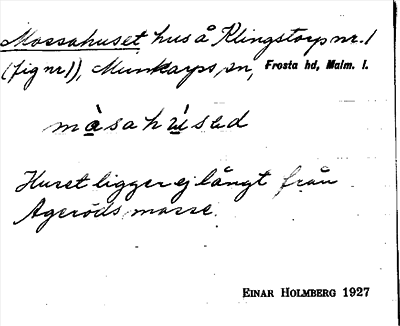 Mossahuset hus å Klingstorp nr. 1
(fig nr 1), Munkarps sn, Frosta hd, Malm. l.
màsahúsed
Huset ligger ej långt från
Ageröds mosse.
EINAR HOLMBERG 1927